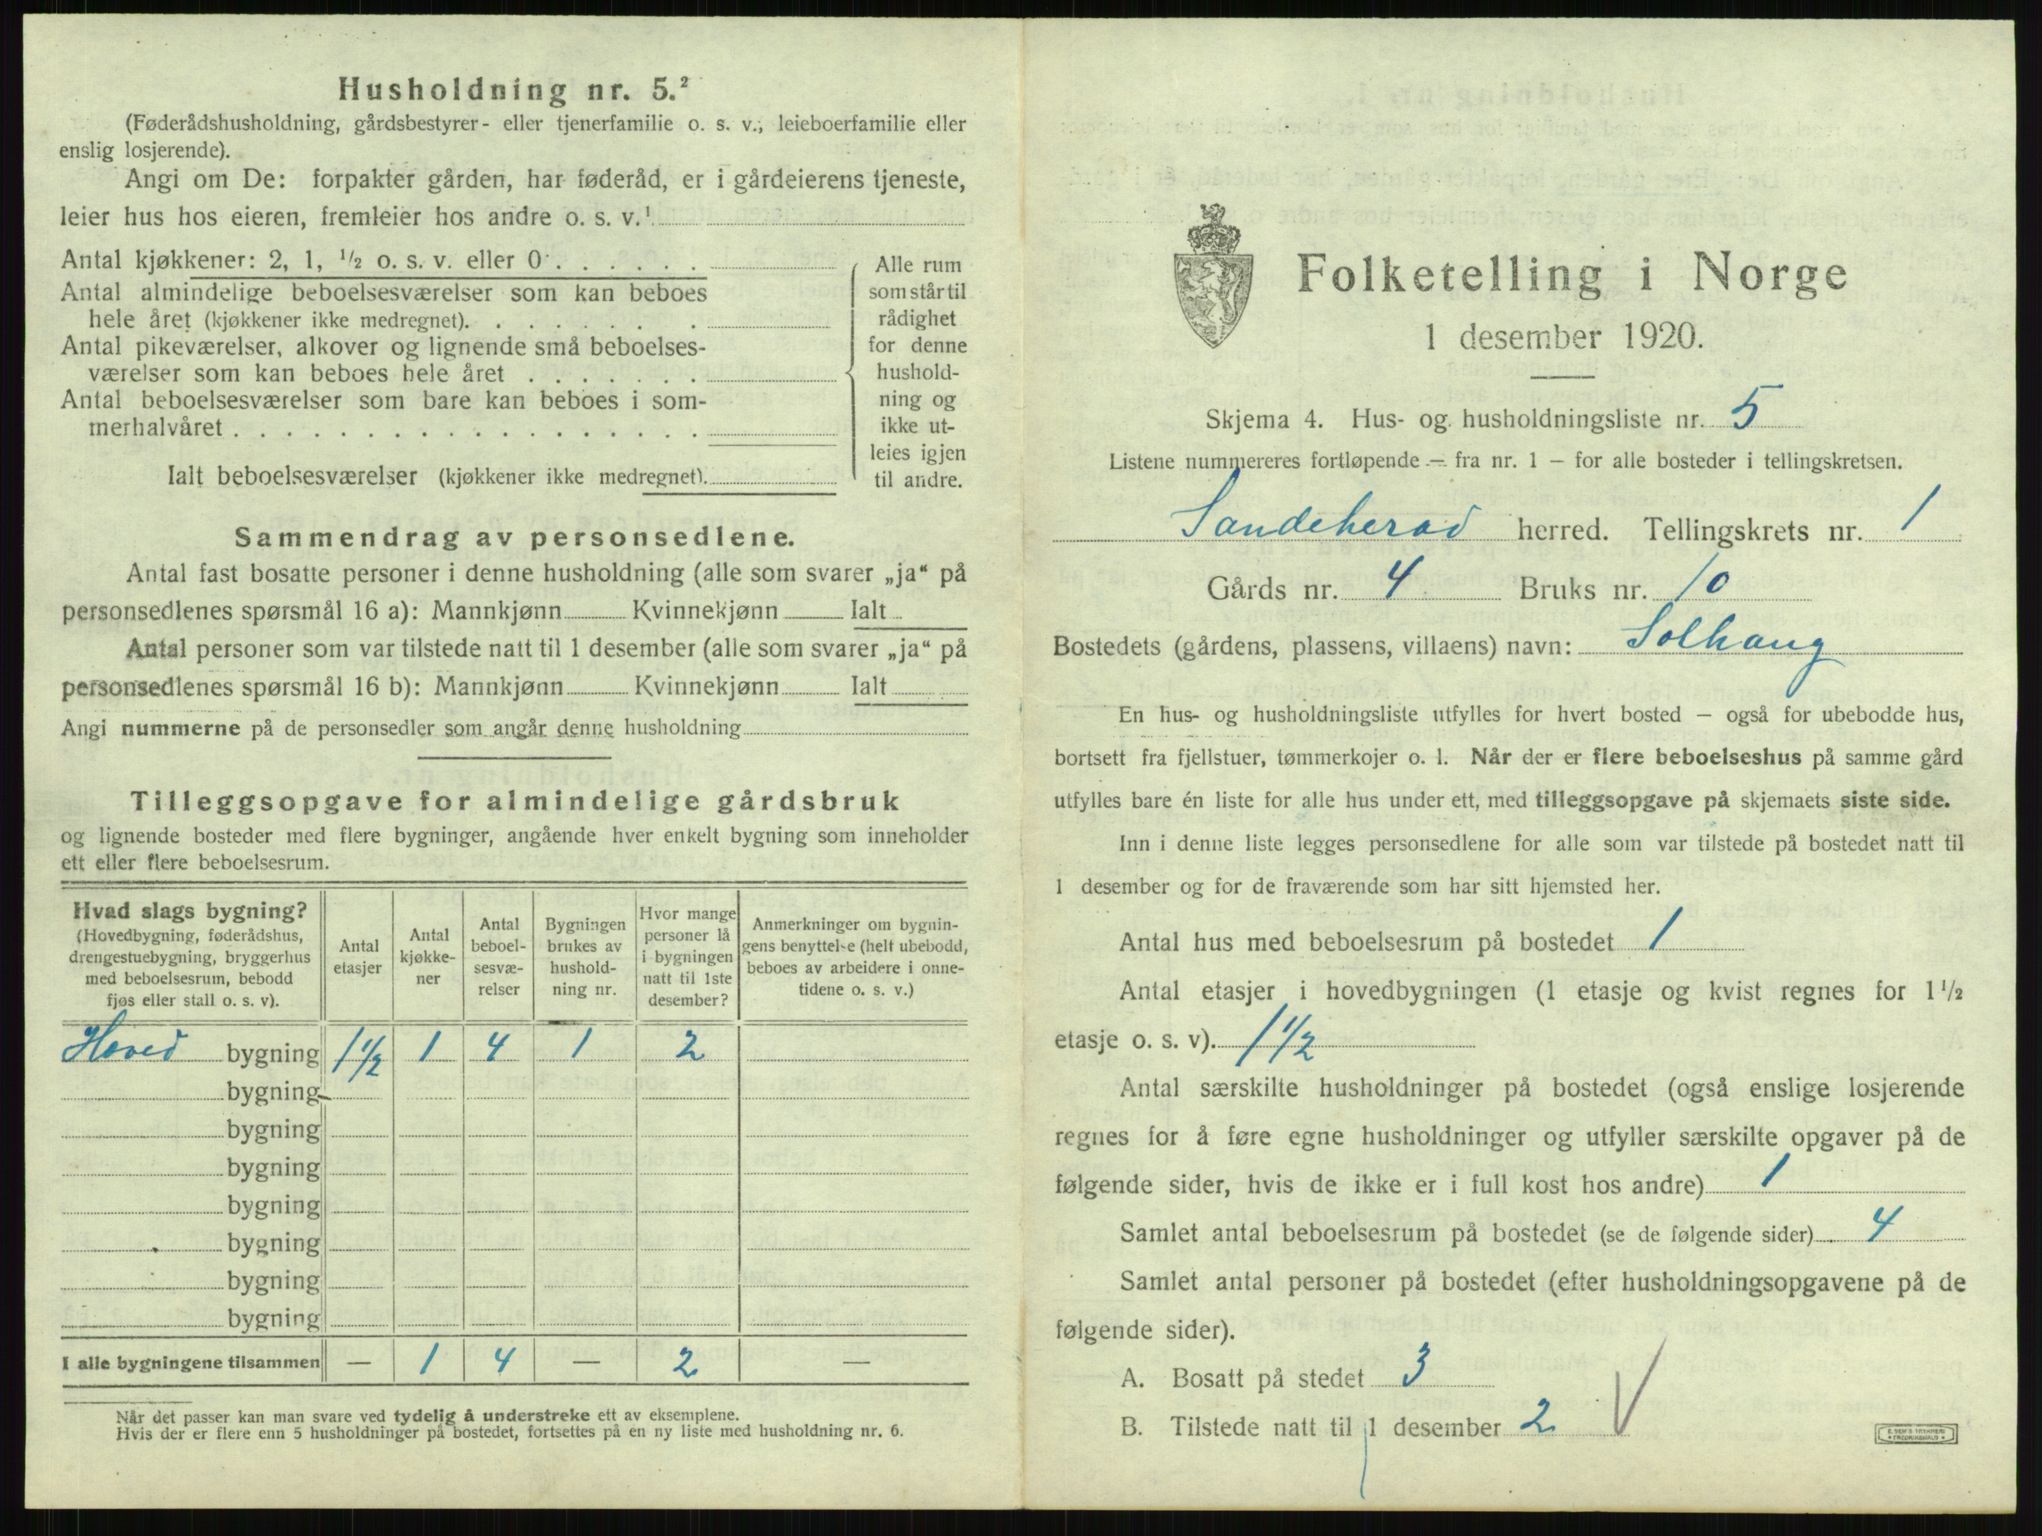 Husholdning nr. 5.²
(Føderådshusholdning, gårdsbestyrer- eller tjenerfamilie o. s. v., leieboerfamilie eller
enslig losjerende).
Angi om De: forpakter gården, har føderåd, er i gårdeierens tjeneste,
leier hus hos eieren, fremleier hos andre o. s. v.¹
Antal kjøkkener: 2, 1, ½ o. s. v. eller 0
Antal almindelige beboelsesværelser som kan beboes
hele året (kjøkkener ikke medregnet).
Antal pikeværelser, alkover og lignende små beboelses-
værelser som kan beboes hele året
Antal beboelsesværelser som bare kan beboes i som-
merhalvåret
Ialt beboelsesværelser (kjøkkener ikke medregnet).
Alle rum
som står til
rådighet
for denne
hushold-
ning og
ikke ut-
leies igjen
til andre.
Sammendrag av personsedlene.
Antal fast bosatte personer i denne husholdning (alle som svarer „ja“ på
personsedlenes spørsmål 16 a): Mannkjønn Kvinnekjønn Ialt
Antal personer som var tilstede natt til 1 desember (alle som svarer „ja“ på
personsedlenes spørsmål 16 b): Mannkjønn Kvinnekjønn Ialt
Angi nummerne på de personsedler som angår denne husholdning
Tilleggsopgave for almindelige gårdsbruk
og lignende bosteder med flere bygninger, angående hver enkelt bygning som inneholder
ett eller flere beboelsesrum.
Hvad slags bygning?
(Hovedbygning, føderådshus,
drengestuebygning, bryggerhus
med beboelsesrum, bebodd
fjøs eller stall o. s. v).
Antal
etasjer
Antal
kjøkke-
ner
Antal
beboel-
sesvæ-
relser
Bygningen
brukes av
hushold-
ning nr.
Hvor mange
personer lå
i bygningen
natt til 1ste
desember?
Anmerkninger om bygnin-
gens benyttelse (helt ubebodd,
beboes av arbeidere i onne-
tidene o. s. v.)
Hoved bygning 1½ 1 4 1 2
bygning
bygning
bygning
bygning
bygning
bygning
bygning
I alle bygningene tilsammen — 1 4 — 2 —
Når det passer kan man svare ved tydelig å understreke ett av eksemplene.
Hvis der er flere enn 5 husholdninger på bostedet, fortsettes på en ny liste med husholdning nr. 6.
Folketelling i Norge
1 desember 1920.
Skjema 4. Hus- og husholdningsliste nr. 5
Listene nummereres fortløpende — fra nr. 1 — for alle bosteder i tellingskretsen.
Sandeherad herred. Tellingskrets nr. 1
Gårds nr. 4 Bruks nr. 10
Bostedets (gårdens, plassens, villaens) navn: Solhaug
En hus- og husholdningsliste utfylles for hvert bosted — også for ubebodde hus,
bortsett fra fjellstuer, tømmerkojer o. l. Når der er flere beboelseshus på samme gård
utfylles bare én liste for alle hus under ett, med tilleggsopgave på skjemaets siste side.
Inn i denne liste legges personsedlene for alle som var tilstede på bostedet natt til
1 desember og for de fraværende som har sitt hjemsted her.
Antal hus med beboelsesrum på bostedet 1
Antal etasjer i hovedbygningen (1 etasje og kvist regnes for 1½
etasje o. s. v). 1½
Antal særskilte husholdninger på bostedet (også enslige losjerende
regnes for å føre egne husholdninger og utfyller særskilte opgaver på de
følgende sider, hvis de ikke er i full kost hos andre) 1
Samlet antal beboelsesrum på bostedet (se de følgende sider) 4
Samlet antal personer på bostedet (efter husholdningsopgavene på de
følgende sider).
A. Bosatt på stedet 3
B. Tilstede natt til 1 desember 2